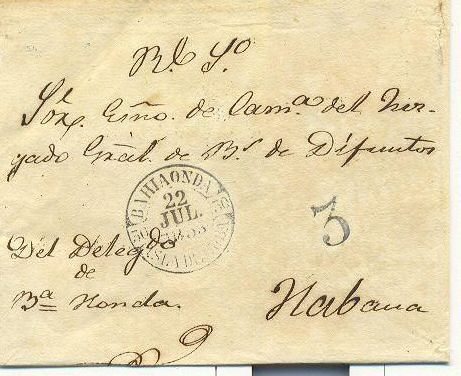 Rl. So.
Sor. Esno. de Cama. del Juz-
gado Gral. de Bs. de Difuntos
BAHIAONDA
22
JUL.
1853
ISLA DE
3
Del Delegdo
de
Ba Honda.
Habana